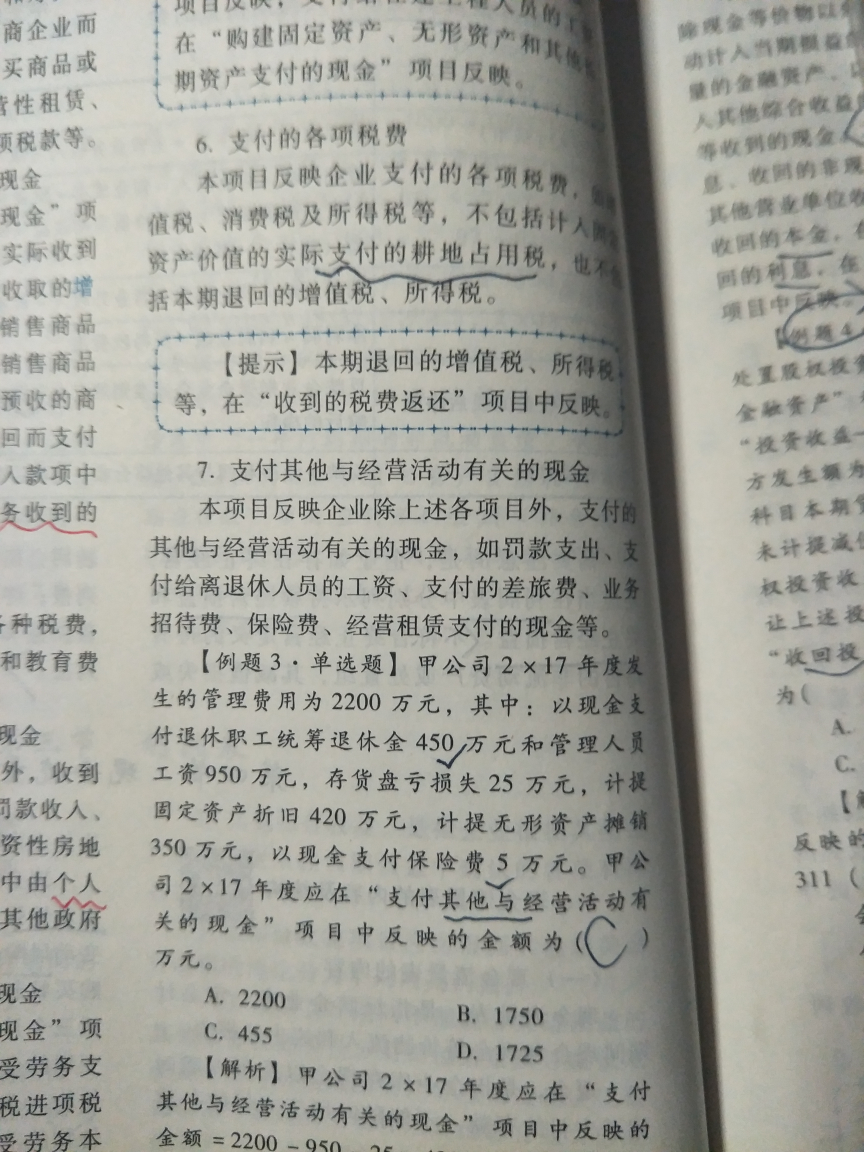 商企业而
买商品或
营性租赁、
项税款等。
现金
现金”项
实际收到
收取的增
销售商品
销售商品
预收的商
回而支付
人款项中
务收到的
各种税费，
和教育费
现金
外，收到
罚款收入、
资性房地
中由个人
其他政府
现金
现金”项
受劳务支
税进项税
受劳务本
在“购建固定资产、无形资产和其他
期资产支付的现金”项目反映。
6. 支付的各项税费
本项目反映企业支付的各项税费，
值税、消费税及所得税等，不包括计入
资产价值的实际支付的耕地占用税，也不
括本期退回的增值税、所得税。
【提示】本期退回的增值税、所得税
等，在“收到的税费返还”项目中反映。
7. 支付其他与经营活动有关的现金
本项目反映企业除上述各项目外，支付的
其他与经营活动有关的现金，如罚款支出、支
付给离退休人员的工资、支付的差旅费、业务
招待费、保险费、经营租赁支付的现金等。
【例题3·单选题】甲公司2×17年度发
生的管理费用为2200万元，其中：以现金支
付退休职工统筹退休金450万元和管理人员
工资950万元，存货盘亏损失25万元，计提
固定资产折旧420万元，计提无形资产摊销
350万元，以现金支付保险费5万元。甲公
司2×17年度应在“支付其他与经营活动有
关的现金”项目中反映的金额为(C)
万元。
A. 2200
B. 1750
C. 455
D. 1725
【解析】甲公司2×17年度应在“支付
其他与经营活动有关的现金”项目中反映的
金额=2200-950
除现金等价物以
动计入当期损益
量的金融资产、
人其他综合收益
等收到的现金
息、收回的非现
其他营业单位收
收回的本金，在
回的利息，在
项目中反映。
【例题4
处置股权投资
金融资产”
“投资收益
方发生额为
科目本期
未计提减值
权投资收
让上述投
“收回投
为(
A.
C.
反映的
311（